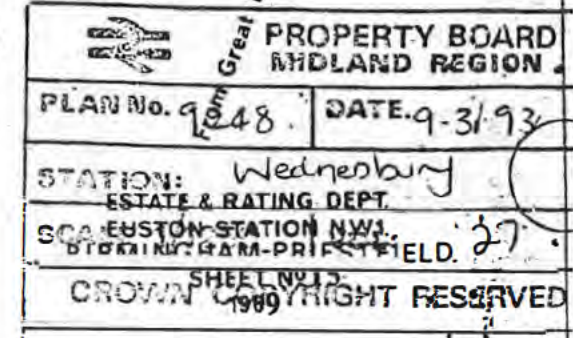 From Great
PROPERTY BOARD
MIDLAND REGION
PLAN No. 9248. DATE. 9-3/93
STATION: Wednesbury
ESTATE & RATING DEPT.
EUSTON STATION N.W.1.
BIRMINGHAM-PRIESTFIELD. 27
SHEET No 15
1989
CROWN COPYRIGHT RESERVED